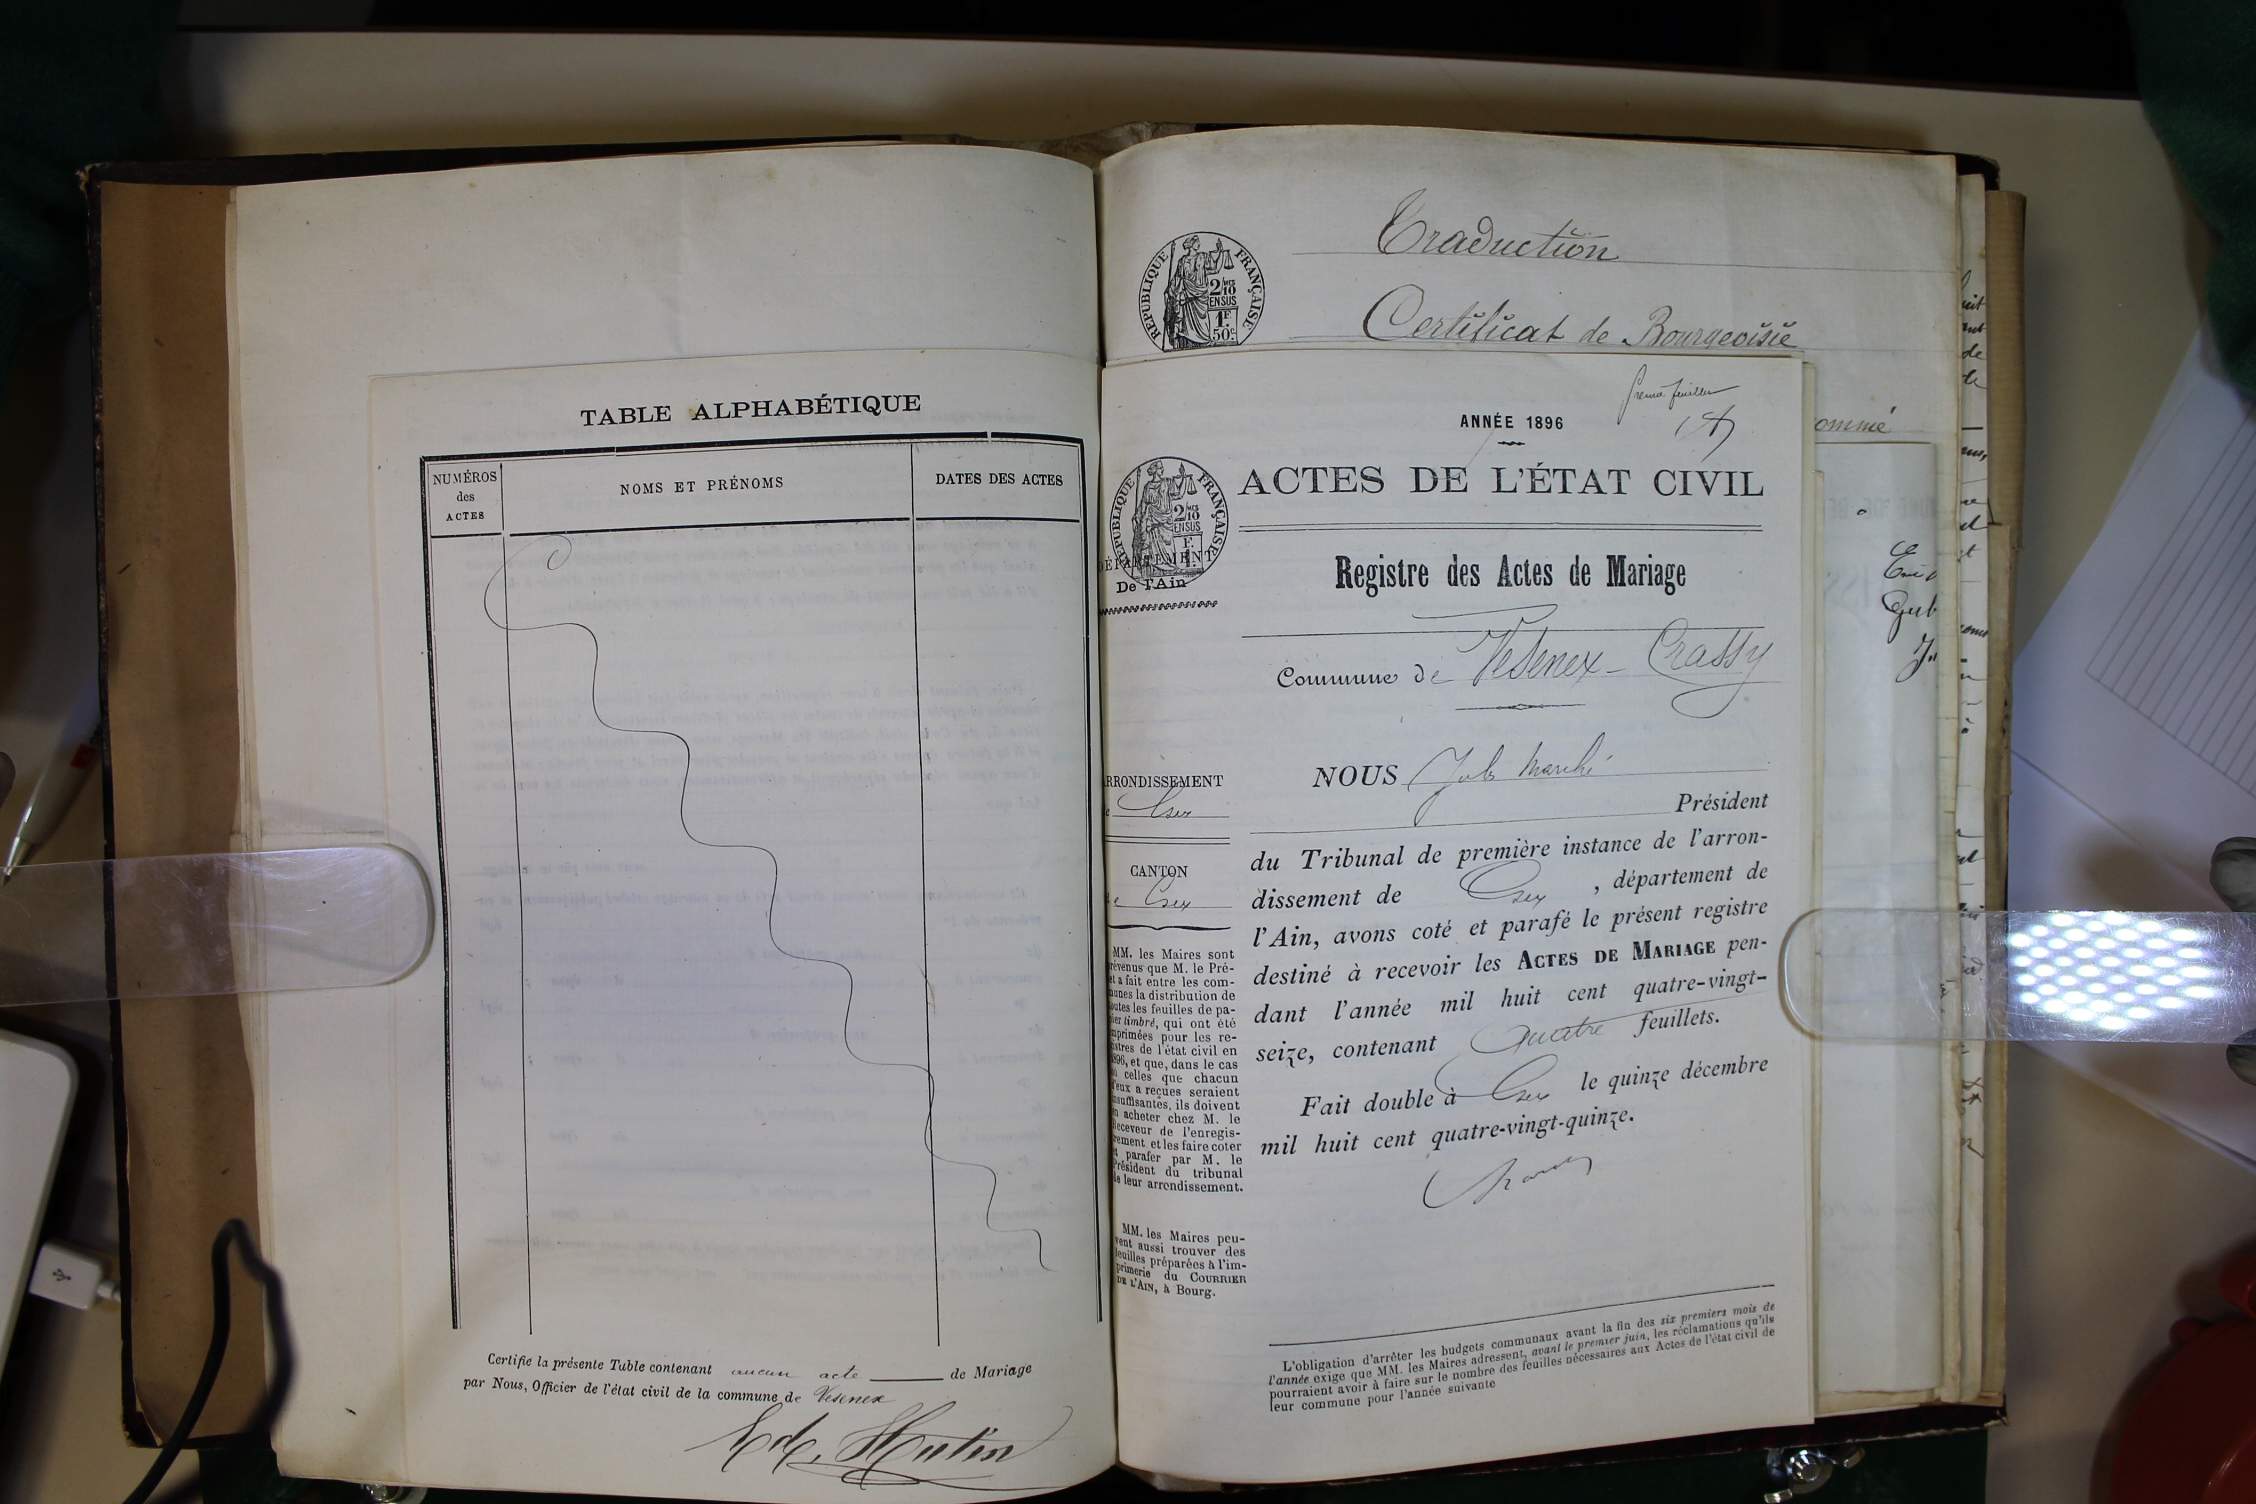 TABLE ALPHABÉTIQUE
NUMÉROS
des
ACTES
NOMS ET PRÉNOMS
DATES DES ACTES
Certifie la présente Table contenant aucun acte de Mariage
par Nous, Officier de l'état civil de la commune de Vesenex
Traduction
RÉPUBLIQUE FRANÇAISE
2/10 EN SUS
1F 50c
Certificat de Bourgeoisie
ommé
ANNÉE 1896
RÉPUBLIQUE FRANÇAISE
2/10
EN SUS
ACTES DE L'ÉTAT CIVIL
DÉPARTEMENT
De l'Ain
Registre des Actes de Mariage
Commune de Vesenex-Crassy
ARRONDISSEMENT
Gex
CANTON
Gex
MM. les Maires sont
révenus que M. le Pré-
et a fait entre les com-
unes la distribution de
outes les feuilles de pa-
ier timbré, qui ont été
mprimées pour les re-
istres de l'état civil en
1896, et que, dans le cas
ù celles que chacun
d'eux a reçues seraient
nsuffisantes, ils doivent
n acheter chez M. le
Receveur de l'enregis-
rement et les faire coter
t parafer par M. le
Président du tribunal
e leur arrondissement.
MM. les Maires peu-
vent aussi trouver des
feuilles préparées à l'im-
primerie du COURRIER
DE L'AIN, à Bourg.
NOUS
Président
du Tribunal de première instance de l'arron-
dissement de Gex, département de
l'Ain, avons coté et parafé le présent registre
destiné à recevoir les ACTES DE MARIAGE pen-
dant l'année mil huit cent quatre-vingt-
seize, contenant quatre feuillets.
Fait double à Gex le quinze décembre
mil huit cent quatre-vingt-quinze.
L'obligation d'arrêter les budgets communaux avant la fin des six premiers mois de
l'année exige que MM. les Maires adressent, avant le premier juin, les réclamations qu'ils
pourraient avoir à faire sur le nombre des feuilles nécessaires aux Actes de l'état civil de
leur commune pour l'année suivante